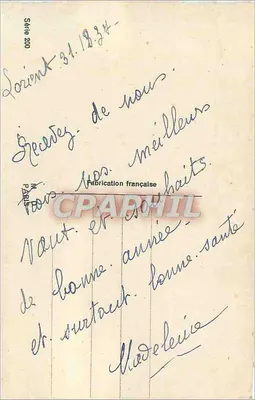 Série 200
Lorient 31.12.34.
Recevez de nous.
tous nos meilleurs
Vœux et souhaits.
de bonne année.
et surtout bonne santé
Madeleine
Fabrication française
M D
PARIS
CPAPHIL